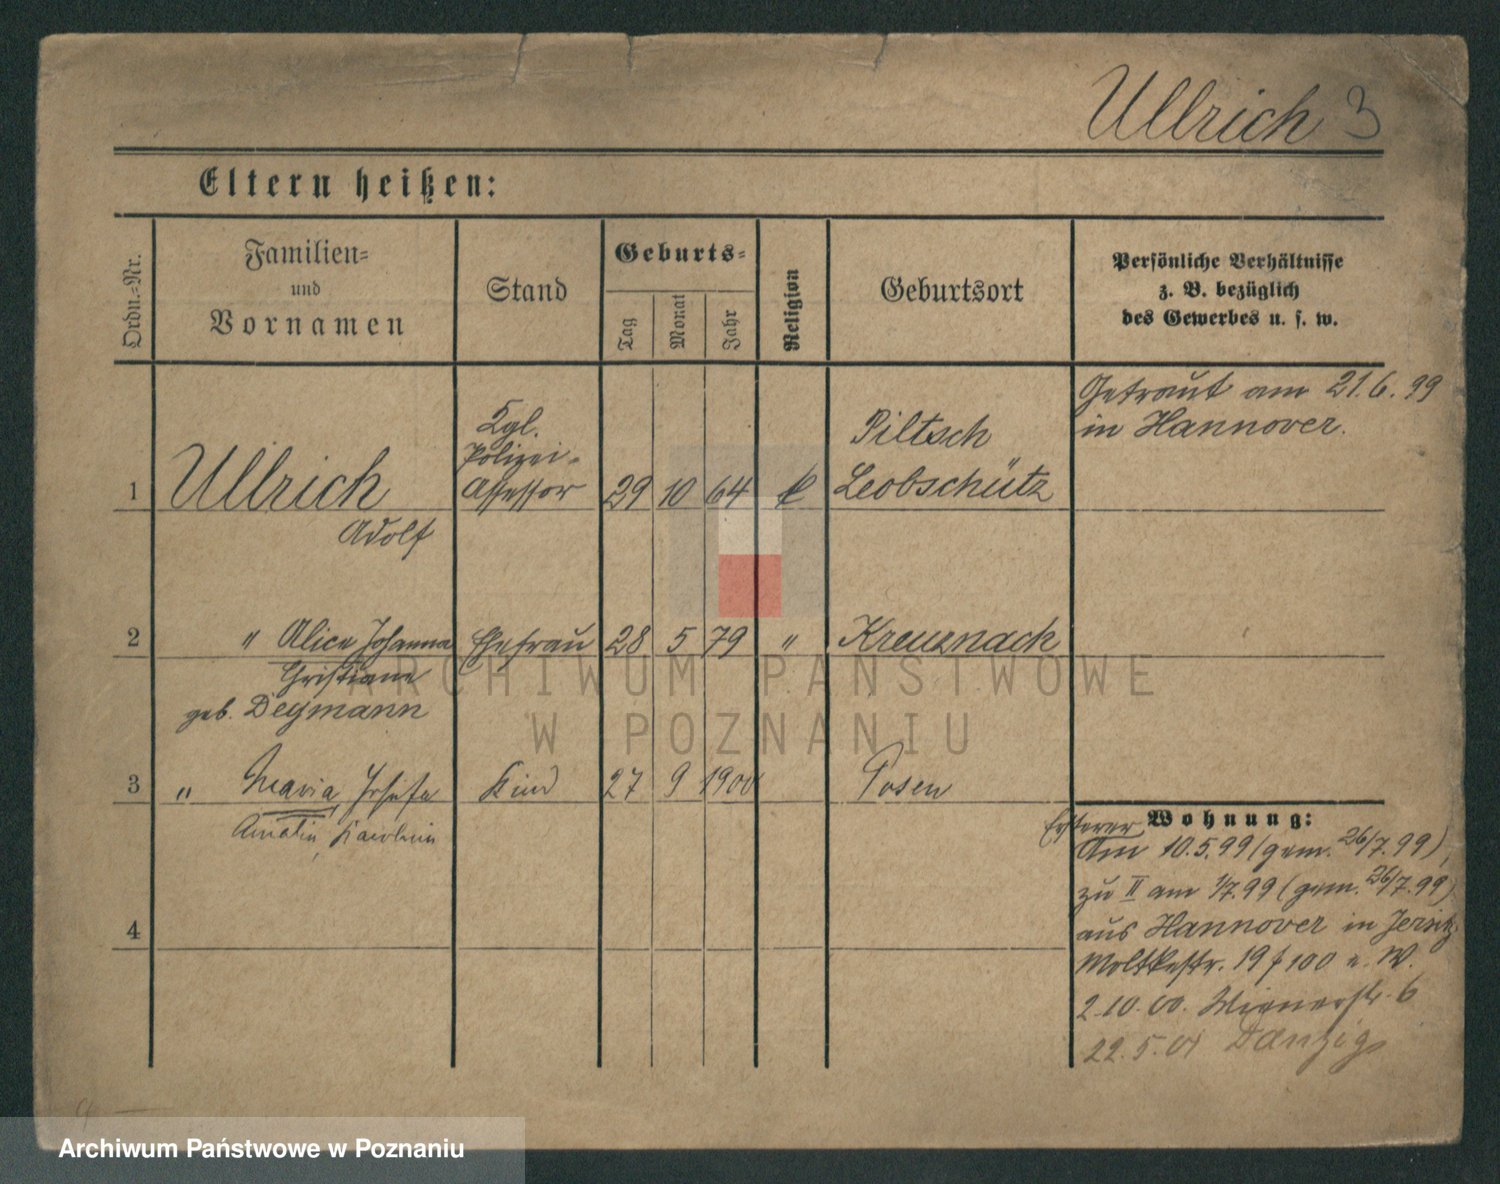 Ullrich 3
Eltern heißen:
Ordn.-Nr.
Familien-
und
Vornamen
Stand
Geburts-
Tag
Monat
Jahr
Religion
Geburtsort
Persönliche Verhältnisse
z. B. bezüglich
des Gewerbes u. s. w.
Getraut am 21.6.99
in Hannover.
Kgl.
Polizei-
1 Ullrich Assessor 29 10 64 k Piltsch
Leobschütz
Adolf
2 " Alice Johanna Ehefrau 28 5 79 " Kreuznach
Christiane
geb. Degmann
3 " Maria Josefa Kind 27 9 1900 Posen
Amalie, Karolina
4
Wohnung:
Ersterer
Am 10.5.99 (gem. 26/7.99),
zu II am 1/7.99 (gem. 26/7.99)
aus Hannover in Jersitz
Moltkestr. 19 f 100 n. W.
2.10.00. Wienerstr. 6
22.5.01 Danzig
ARCHIWUM PAŃSTWOWE
W POZNANIU
Archiwum Państwowe w Poznaniu